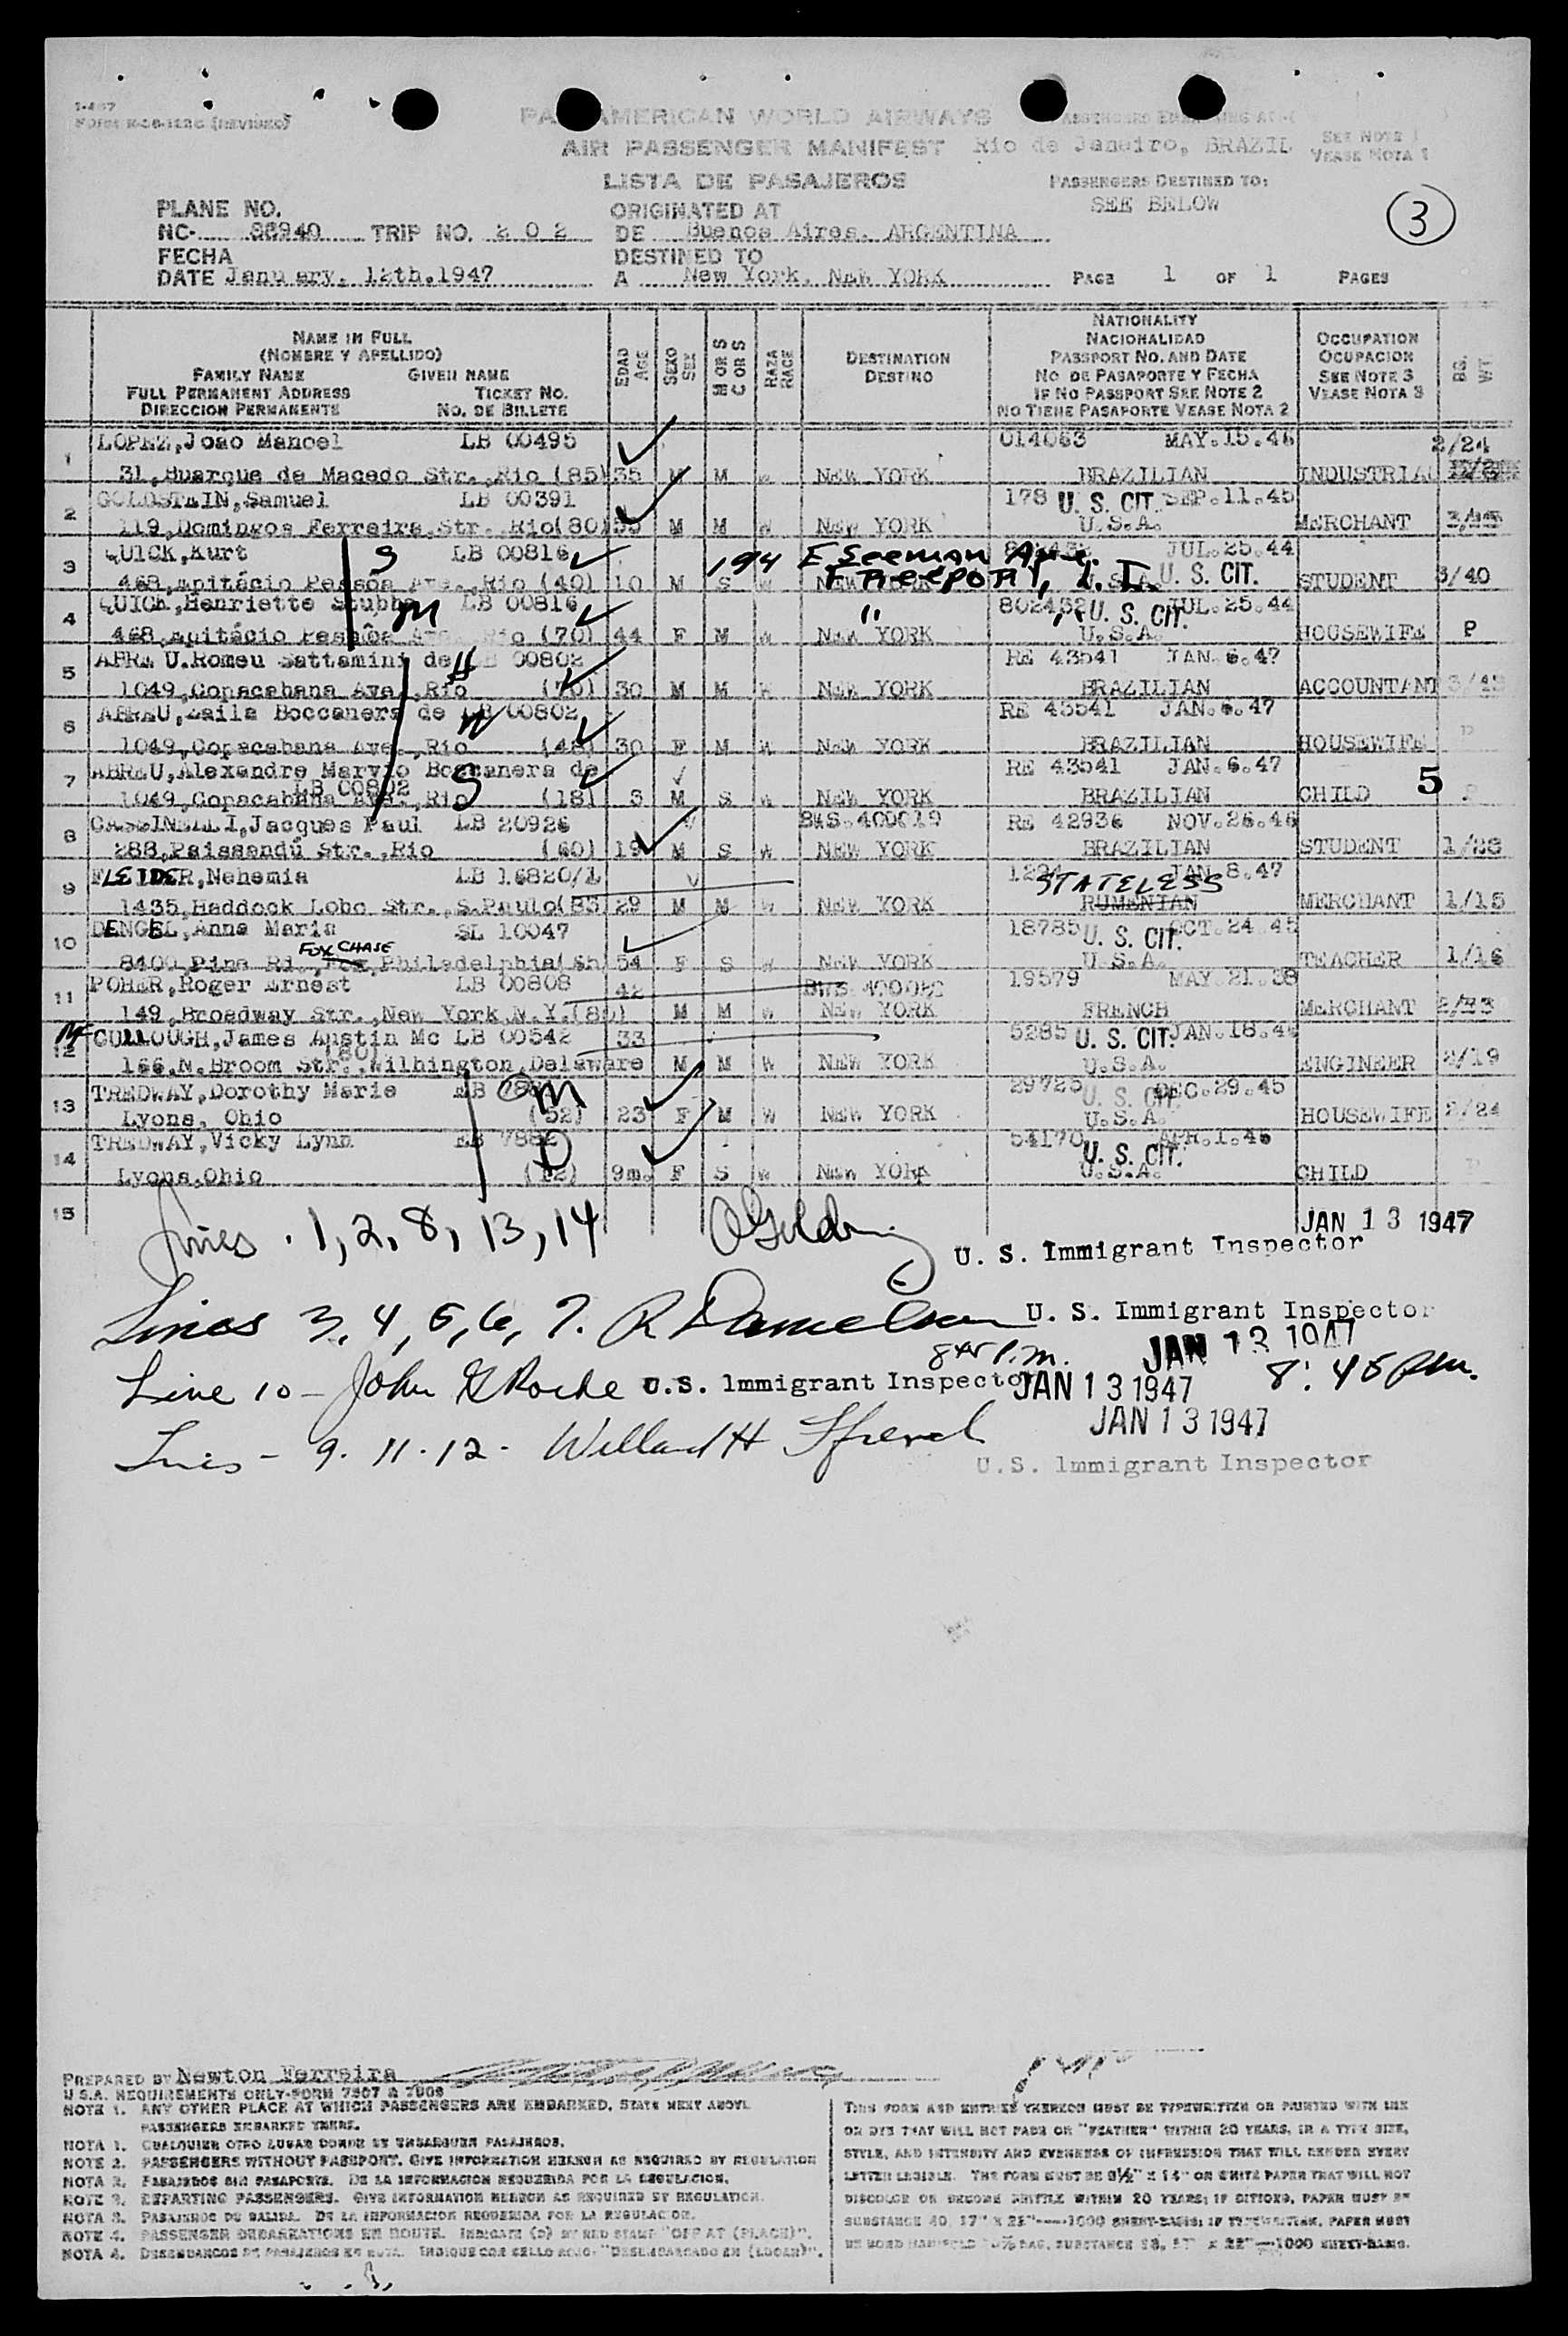 I-467
FORM R-26-122C (REVISED)
PAN AMERICAN WORLD AIRWAYS
AIR PASSENGER MANIFEST Rio de Janeiro, BRAZIL
SEE NOTE 1
VEASE NOTA 1
LISTA DE PASAJEROS
PASSENGERS DESTINED TO:
SEE BELOW
3
PLANE NO.
NC- 88940 TRIP NO. 202
ORIGINATED AT
DE Buenos Aires, ARGENTINA
FECHA
DATE January, 12th, 1947
DESTINED TO
A New York, NEW YORK
PAGE 1 OF 1 PAGES
NAME IN FULL
(NOMBRE Y APELLIDO)
FAMILY NAME GIVEN NAME
FULL PERMANENT ADDRESS TICKET NO.
DIRECCION PERMANENTE NO. DE BILLETE
EDAD
AGE
SEXO
SEX
M OR S
C OR S
RAZA
RACE
DESTINATION
DESTINO
NATIONALITY
NACIONALIDAD
PASSPORT NO. AND DATE
NO DE PASAPORTE Y FECHA
IF NO PASSPORT SEE NOTE 2
NO TIENE PASAPORTE VEASE NOTA 2
OCCUPATION
OCUPACION
SEE NOTE 3
VEASE NOTA 3
BG.
WT
1 LOPEZ, João Manoel LB 00495 014063 MAY.15.46 2/24
31, Buarque de Macedo Str., Rio (85) 35 M M W NEW YORK BRAZILIAN INDUSTRIAL
2 GOLDSTEIN, Samuel LB 00391 178 U. S. CIT. SEP.11.45
119, Domingos Ferreira, Str. Rio(80) 55 M M W NEW YORK U.S.A. MERCHANT
3 QUICK, Kurt S LB 00816 194 E Seeman Ave. JUL.25.44
468, Epitácio Pessôa Ave., Rio (40) 10 M S W NEW YORK FREEPORT, L. I. U. S. CIT. STUDENT 3/40
4 QUICK, Henriette Stubbe M LB 00816 " 802432 U. S. CIT. JUL.25.44
468, Epitácio Pessôa Ave. Rio (70) 44 F M W NEW YORK U.S.A. HOUSEWIFE P
5 ABREU, Romeu Sattamini de H LB 00802 RE 43541 JAN.6.47
1049, Copacabana Ave., Rio (70) 30 M M W NEW YORK BRAZILIAN ACCOUNTANT
6 ABREU, Laila Boccanera de W LB 00802 RE 43541 JAN.6.47
1049, Copacabana Ave., Rio (48) 30 F M W NEW YORK BRAZILIAN HOUSEWIFE P
7 ABREU, Alexandre Boccanera de S RE 43541 JAN.6.47
LB 00802
1049, Copacabana Ave., Rio (18) M S W NEW YORK BRAZILIAN CHILD 5 P
8 Jacques Paul LB 20926 BWS.400019 RE 42936 NOV.26.46
288, Paissandú Str., Rio (60) 19 M S W NEW YORK BRAZILIAN STUDENT
9 FLEIDER, Nehemia LB 16820/1 JAN.8.47
STATELESS
1435, Haddock Lobo Str., S.Paulo 29 M M W NEW YORK RUMENIAN MERCHANT 1/15
10 DENGEL, Anna Maria SL 10047 18785 U. S. CIT. OCT.24.45
FOX CHASE
8400, Pine Rd., Fox, Philadelphia 54 F S W NEW YORK U.S.A. TEACHER 1/16
11 POHER, Roger Ernest LB 00808 42 19579 MAY.21.38
149, Broadway Str., New York, N.Y. M M W NEW YORK FRENCH MERCHANT
12 Mc CULLOUGH, James Austin Mc LB 00542 33 5285 U. S. CIT. JAN.18.46
(80)
166, N. Broom Str., Wilhington, Delaware M M W NEW YORK U.S.A. ENGINEER 2/19
13 TREDWAY, Dorothy Marie M 29725 U. S. CIT. DEC.29.45
Lyons, Ohio (52) 23 F M W NEW YORK U.S.A. HOUSEWIFE 2/24
14 TREDWAY, Vicky Lynn EB 7882 D 54170 APR.1.46
U. S. CIT.
Lyons, Ohio (12) 9m. F S W NEW YORK U.S.A. CHILD P
15
JAN 13 1947
Lines. 1, 2, 8, 13, 14
U. S. Immigrant Inspector
Lines 3, 4, 5, 6, 7. R Danielson U. S. Immigrant Inspector
JAN 13 1947
8:45 p.m.
Line 10 - John Roche U.S. Immigrant Inspector JAN 13 1947
JAN 13 1947
Lines - 9. 11. 12. Willard H
U.S. Immigrant Inspector
PREPARED BY Newton Ferreira
U.S.A. REQUIREMENTS ONLY-FORM 7507 & 7509
NOTE 1. ANY OTHER PLACE AT WHICH PASSENGERS ARE EMBARKED, STATE NEXT ABOVE
PASSENGERS EMBARKED THERE.
NOTA 1. CUALQUIER OTRO LUGAR DONDE SE EMBARQUEN PASAJEROS.
NOTE 2. PASSENGERS WITHOUT PASSPORT. GIVE INFORMATION HEREON AS REQUIRED BY REGULATION
NOTA 2. PASAJEROS SIN PASAPORTE. DE LA INFORMACION REQUERIDA POR LA REGULACION.
NOTE 3. DEPARTING PASSENGERS. GIVE INFORMATION HEREON AS REQUIRED BY REGULATION.
NOTA 3. PASAJEROS DE SALIDA. DE LA INFORMACION REQUERIDA POR LA REGULACION.
NOTE 4. PASSENGER DEBARKATIONS EN ROUTE. INDICATE (D) BY RED STAMP "OFF AT (PLACE)".
NOTA 4. DESEMBARCOS DE PASAJEROS EN RUTA. INDIQUE CON SELLO ROJO- "DESEMBARCADO EN (LUGAR)".
THIS FORM AND ENTRIES THEREON MUST BE TYPEWRITTEN OR PRINTED WITH INK
OR DYE THAT WILL NOT FADE OR "FEATHER" WITHIN 20 YEARS, IN A TYPE SIZE,
STYLE, AND INTENSITY AND EVENNESS OF IMPRESSION THAT WILL RENDER EVERY
LETTER LEGIBLE. THE FORM MUST BE 8½" X 14" ON WHITE PAPER THAT WILL NOT
DISCOLOR OR BECOME BRITTLE WITHIN 20 YEARS; IF DITTOED, PAPER MUST BE
SUBSTANCE 40, 17" X 22"—1000 SHEET-BASIS; IF TYPEWRITTEN, PAPER MUST
BE BOND SUBSTANCE X 22"—1000 SHEET-BASIS.